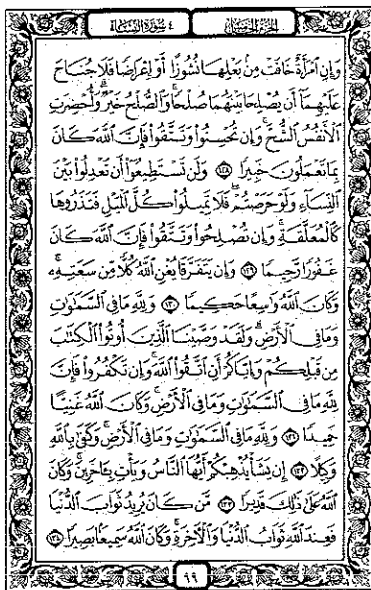 الجزء الخامس
٤ سورة النساء
وَإِنِ ٱمْرَأَةٌ خَافَتْ مِنۢ بَعْلِهَا نُشُوزًا أَوْ إِعْرَاضًا فَلَا جُنَاحَ
عَلَيْهِمَآ أَن يُصْلِحَا بَيْنَهُمَا صُلْحًا ۚ وَٱلصُّلْحُ خَيْرٌ ۗ وَأُحْضِرَتِ
ٱلْأَنفُسُ ٱلشُّحَّ ۚ وَإِن تُحْسِنُوا۟ وَتَتَّقُوا۟ فَإِنَّ ٱللَّهَ كَانَ
بِمَا تَعْمَلُونَ خَبِيرًا ١٢٨ وَلَن تَسْتَطِيعُوٓا۟ أَن تَعْدِلُوا۟ بَيْنَ
ٱلنِّسَآءِ وَلَوْ حَرَصْتُمْ ۖ فَلَا تَمِيلُوا۟ كُلَّ ٱلْمَيْلِ فَتَذَرُوهَا
كَٱلْمُعَلَّقَةِ ۚ وَإِن تُصْلِحُوا۟ وَتَتَّقُوا۟ فَإِنَّ ٱللَّهَ كَانَ
غَفُورًا رَّحِيمًا ١٢٩ وَإِن يَتَفَرَّقَا يُغْنِ ٱللَّهُ كُلًّا مِّن سَعَتِهِۦ ۚ
وَكَانَ ٱللَّهُ وَٰسِعًا حَكِيمًا ١٣٠ وَلِلَّهِ مَا فِى ٱلسَّمَٰوَٰتِ
وَمَا فِى ٱلْأَرْضِ ۗ وَلَقَدْ وَصَّيْنَا ٱلَّذِينَ أُوتُوا۟ ٱلْكِتَٰبَ
مِن قَبْلِكُمْ وَإِيَّاكُمْ أَنِ ٱتَّقُوا۟ ٱللَّهَ ۚ وَإِن تَكْفُرُوا۟ فَإِنَّ
لِلَّهِ مَا فِى ٱلسَّمَٰوَٰتِ وَمَا فِى ٱلْأَرْضِ ۚ وَكَانَ ٱللَّهُ غَنِيًّا
حَمِيدًا ١٣١ وَلِلَّهِ مَا فِى ٱلسَّمَٰوَٰتِ وَمَا فِى ٱلْأَرْضِ ۚ وَكَفَىٰ بِٱللَّهِ
وَكِيلًا ١٣٢ إِن يَشَأْ يُذْهِبْكُمْ أَيُّهَا ٱلنَّاسُ وَيَأْتِ بِـَٔاخَرِينَ ۚ وَكَانَ
ٱللَّهُ عَلَىٰ ذَٰلِكَ قَدِيرًا ١٣٣ مَّن كَانَ يُرِيدُ ثَوَابَ ٱلدُّنْيَا
فَعِندَ ٱللَّهِ ثَوَابُ ٱلدُّنْيَا وَٱلْأَخِرَةِ ۚ وَكَانَ ٱللَّهُ سَمِيعًۢا بَصِيرًا ١٣٤
٩٩